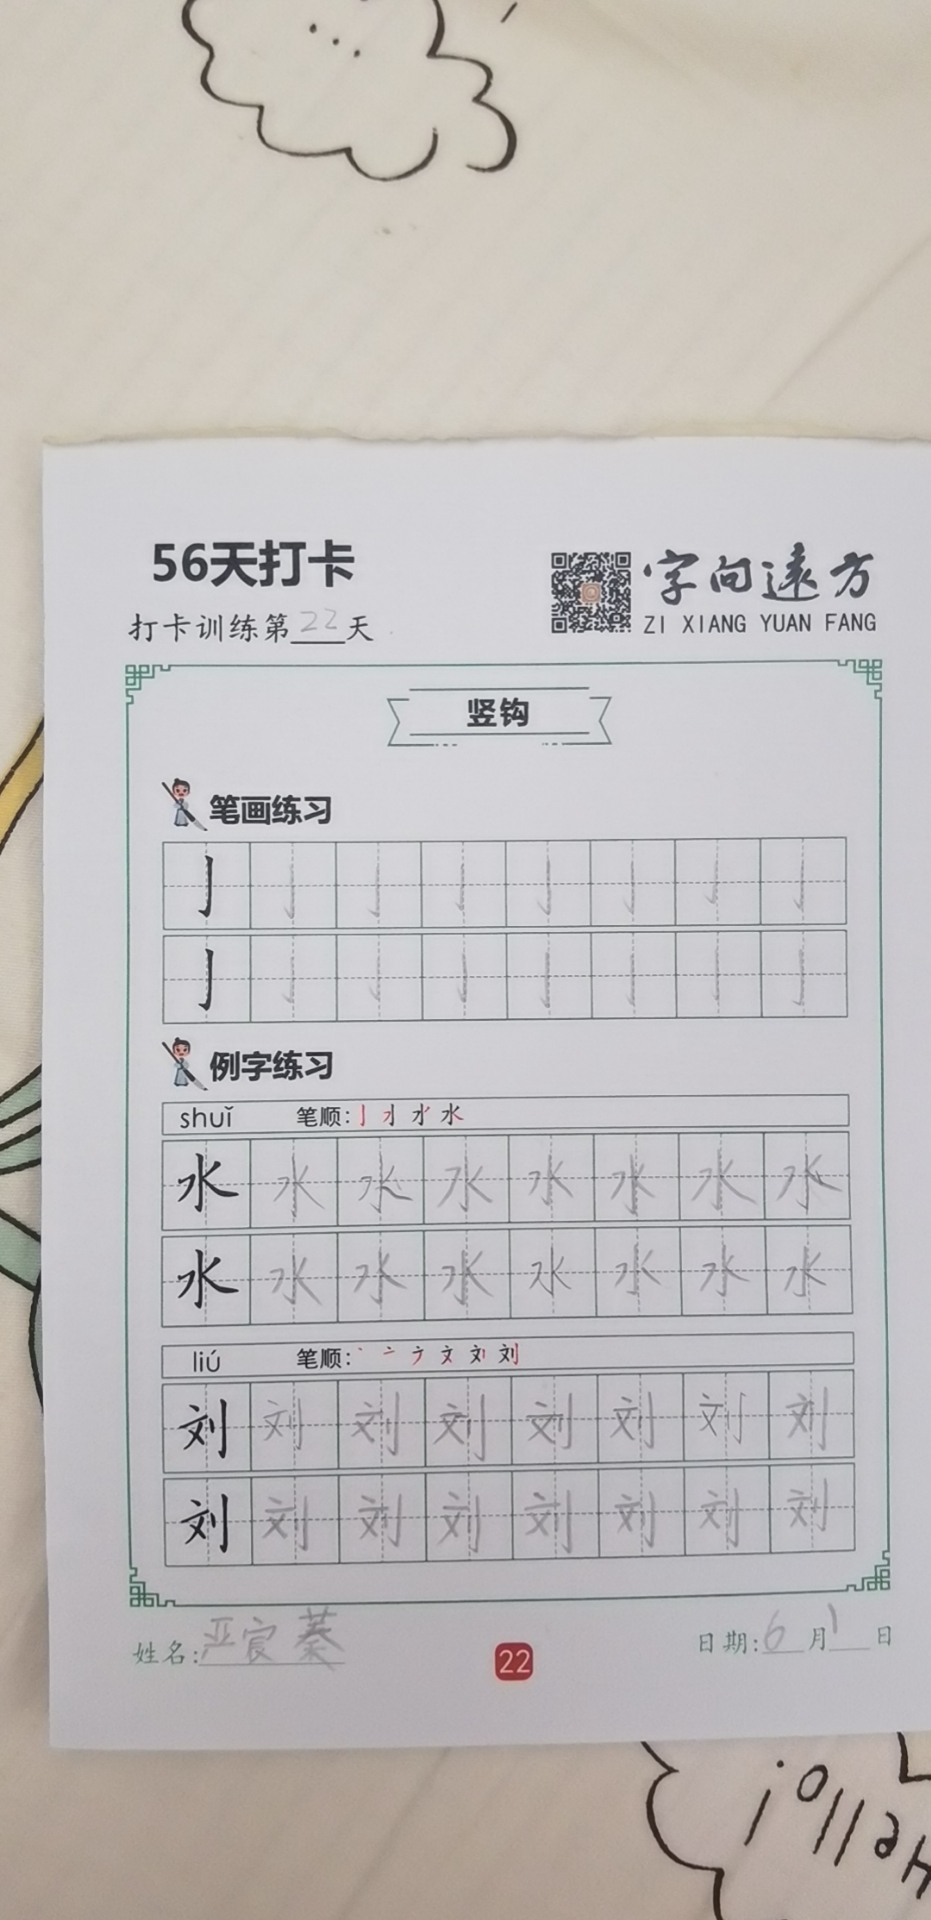 56天打卡
打卡训练第22天
字向遠方
ZI XIANG YUAN FANG
竖钩
笔画练习
亅亅亅亅亅亅亅亅
亅亅亅亅亅亅亅亅
例字练习
shuǐ 笔顺:
水水水水水水水水
水水水水水水水水
liú 笔顺:
刘刘刘刘刘刘刘刘
刘刘刘刘刘刘刘刘
姓名:严宸蓁
22
日期:6月1日
Hello!